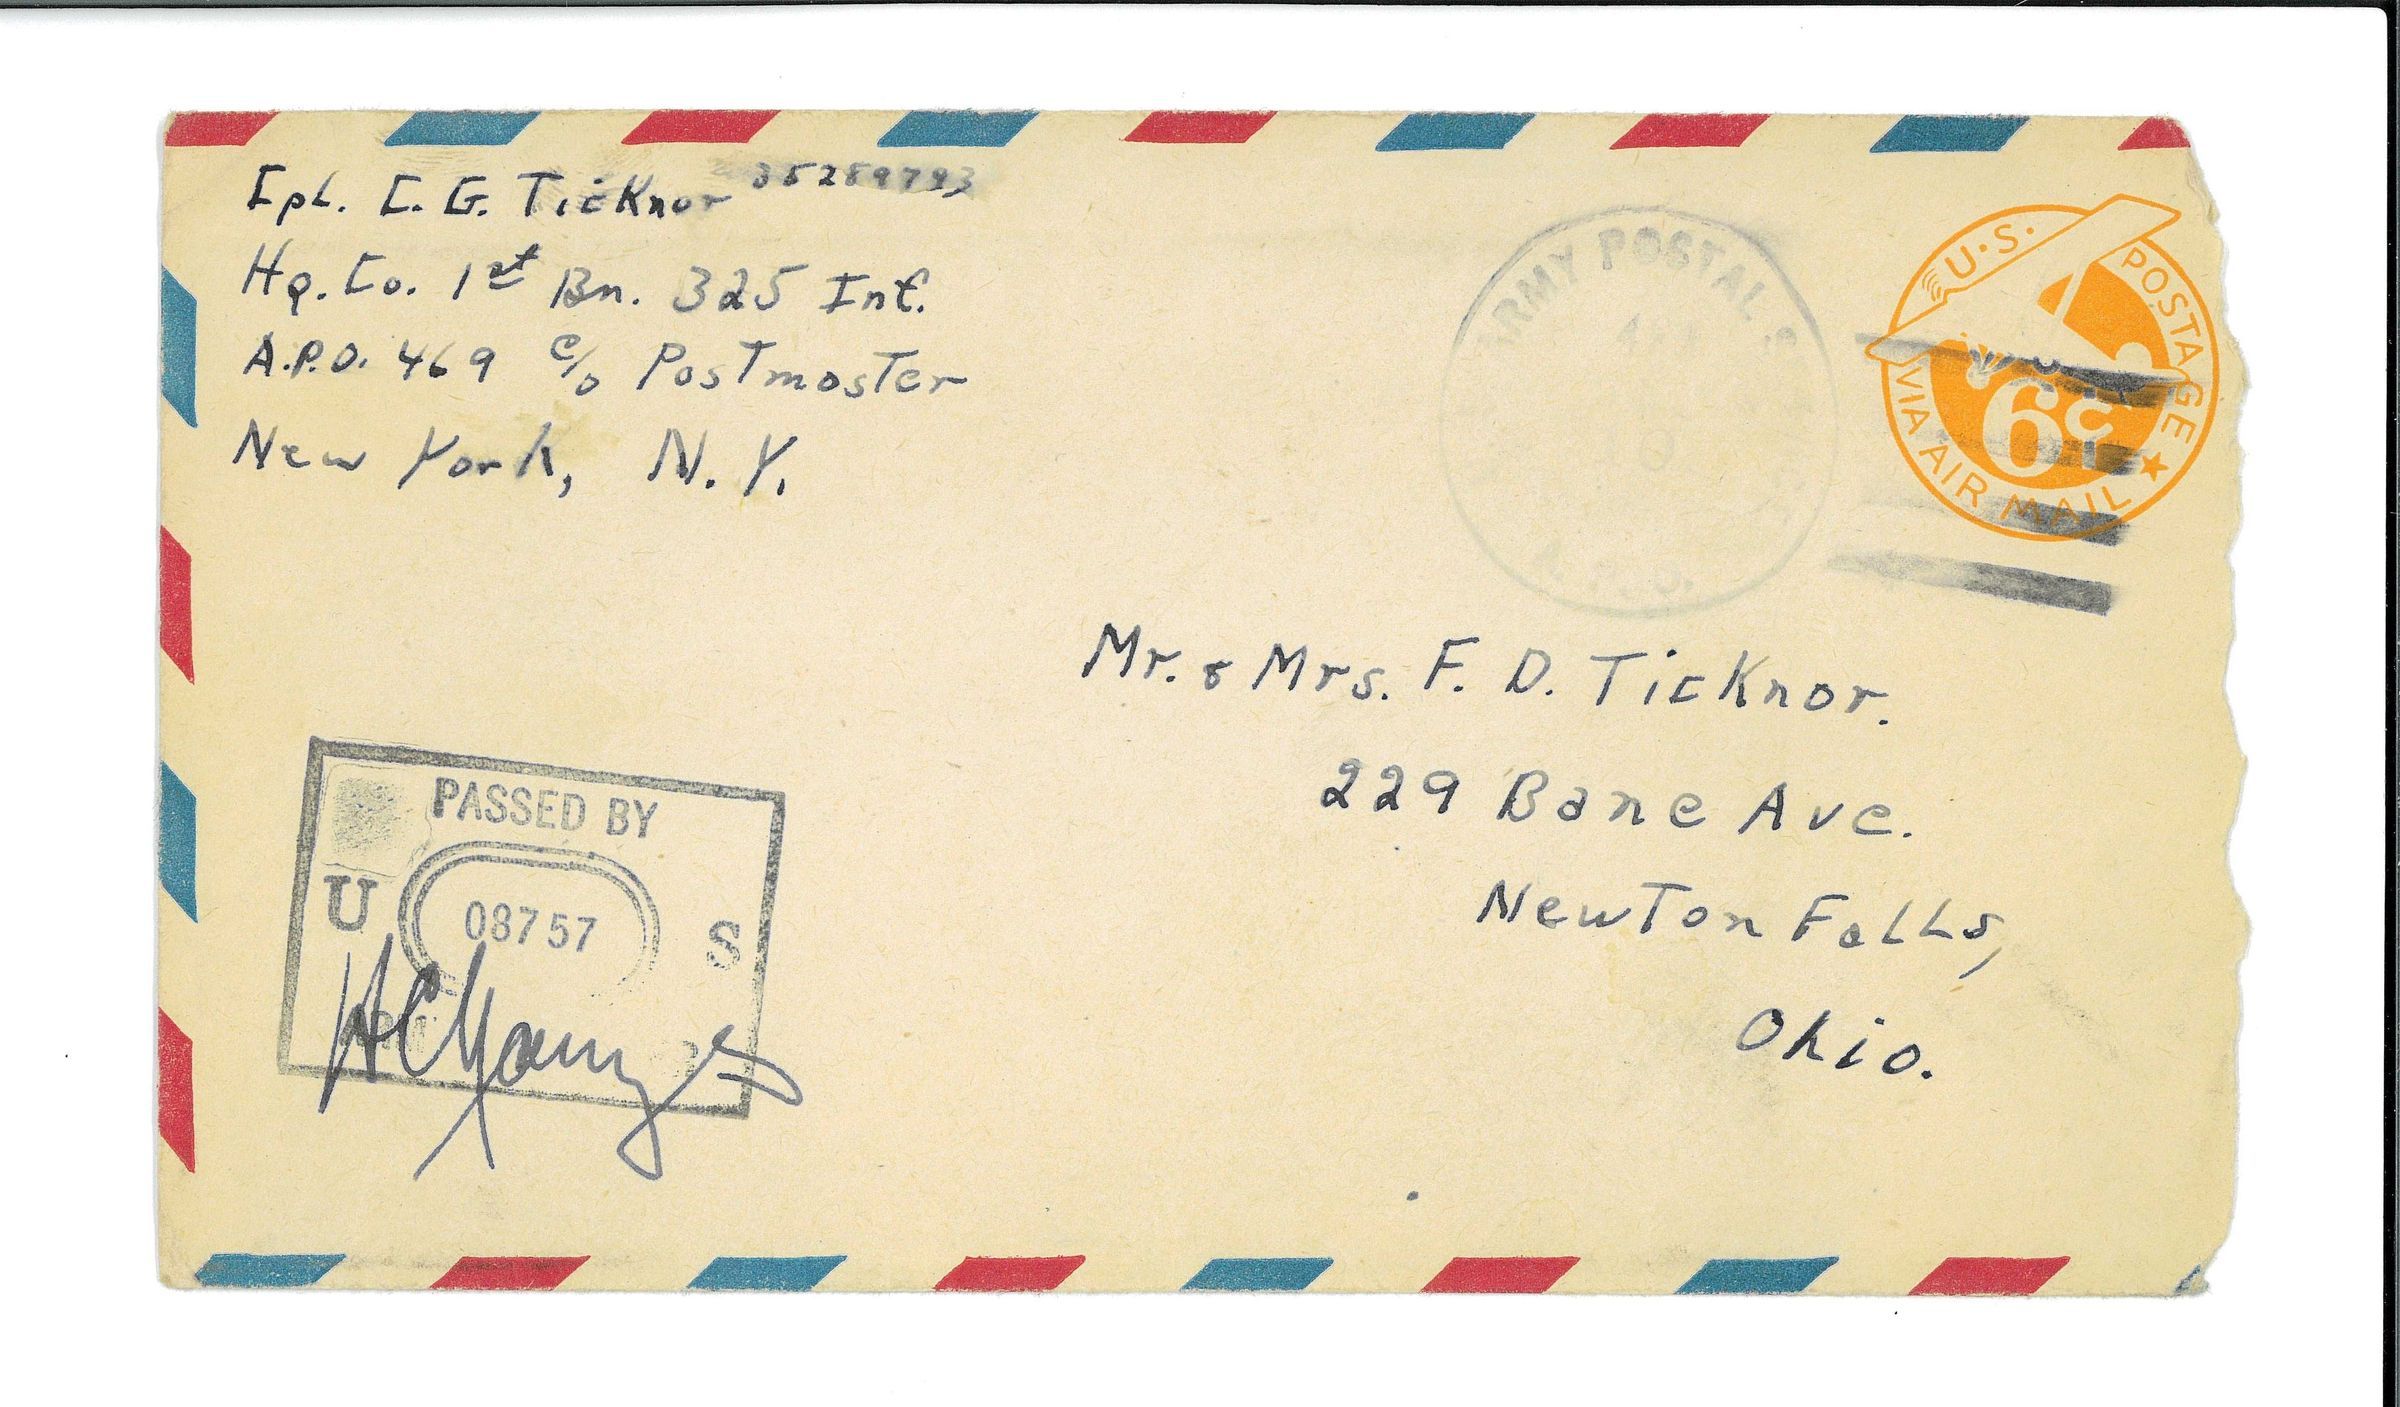 Cpl. C. G. Ticknor 35259793
Hq. Co. 1st Bn. 325 Inf.
A.P.O. 469 c/o Postmaster
New York, N.Y.
ARMY POSTAL
A.P.O.
U.S. POSTAGE
6¢
VIA AIR MAIL
Mr. & Mrs. F. D. Ticknor.
229 Bane Ave.
Newton Falls,
Ohio.
PASSED BY
U 08757 S